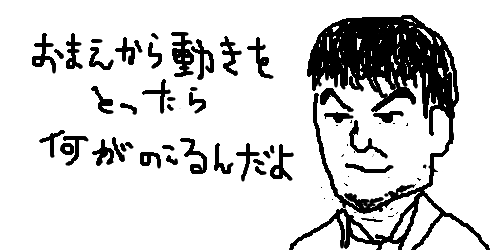 おまえから動きを
とったら
何がのこるんだよ